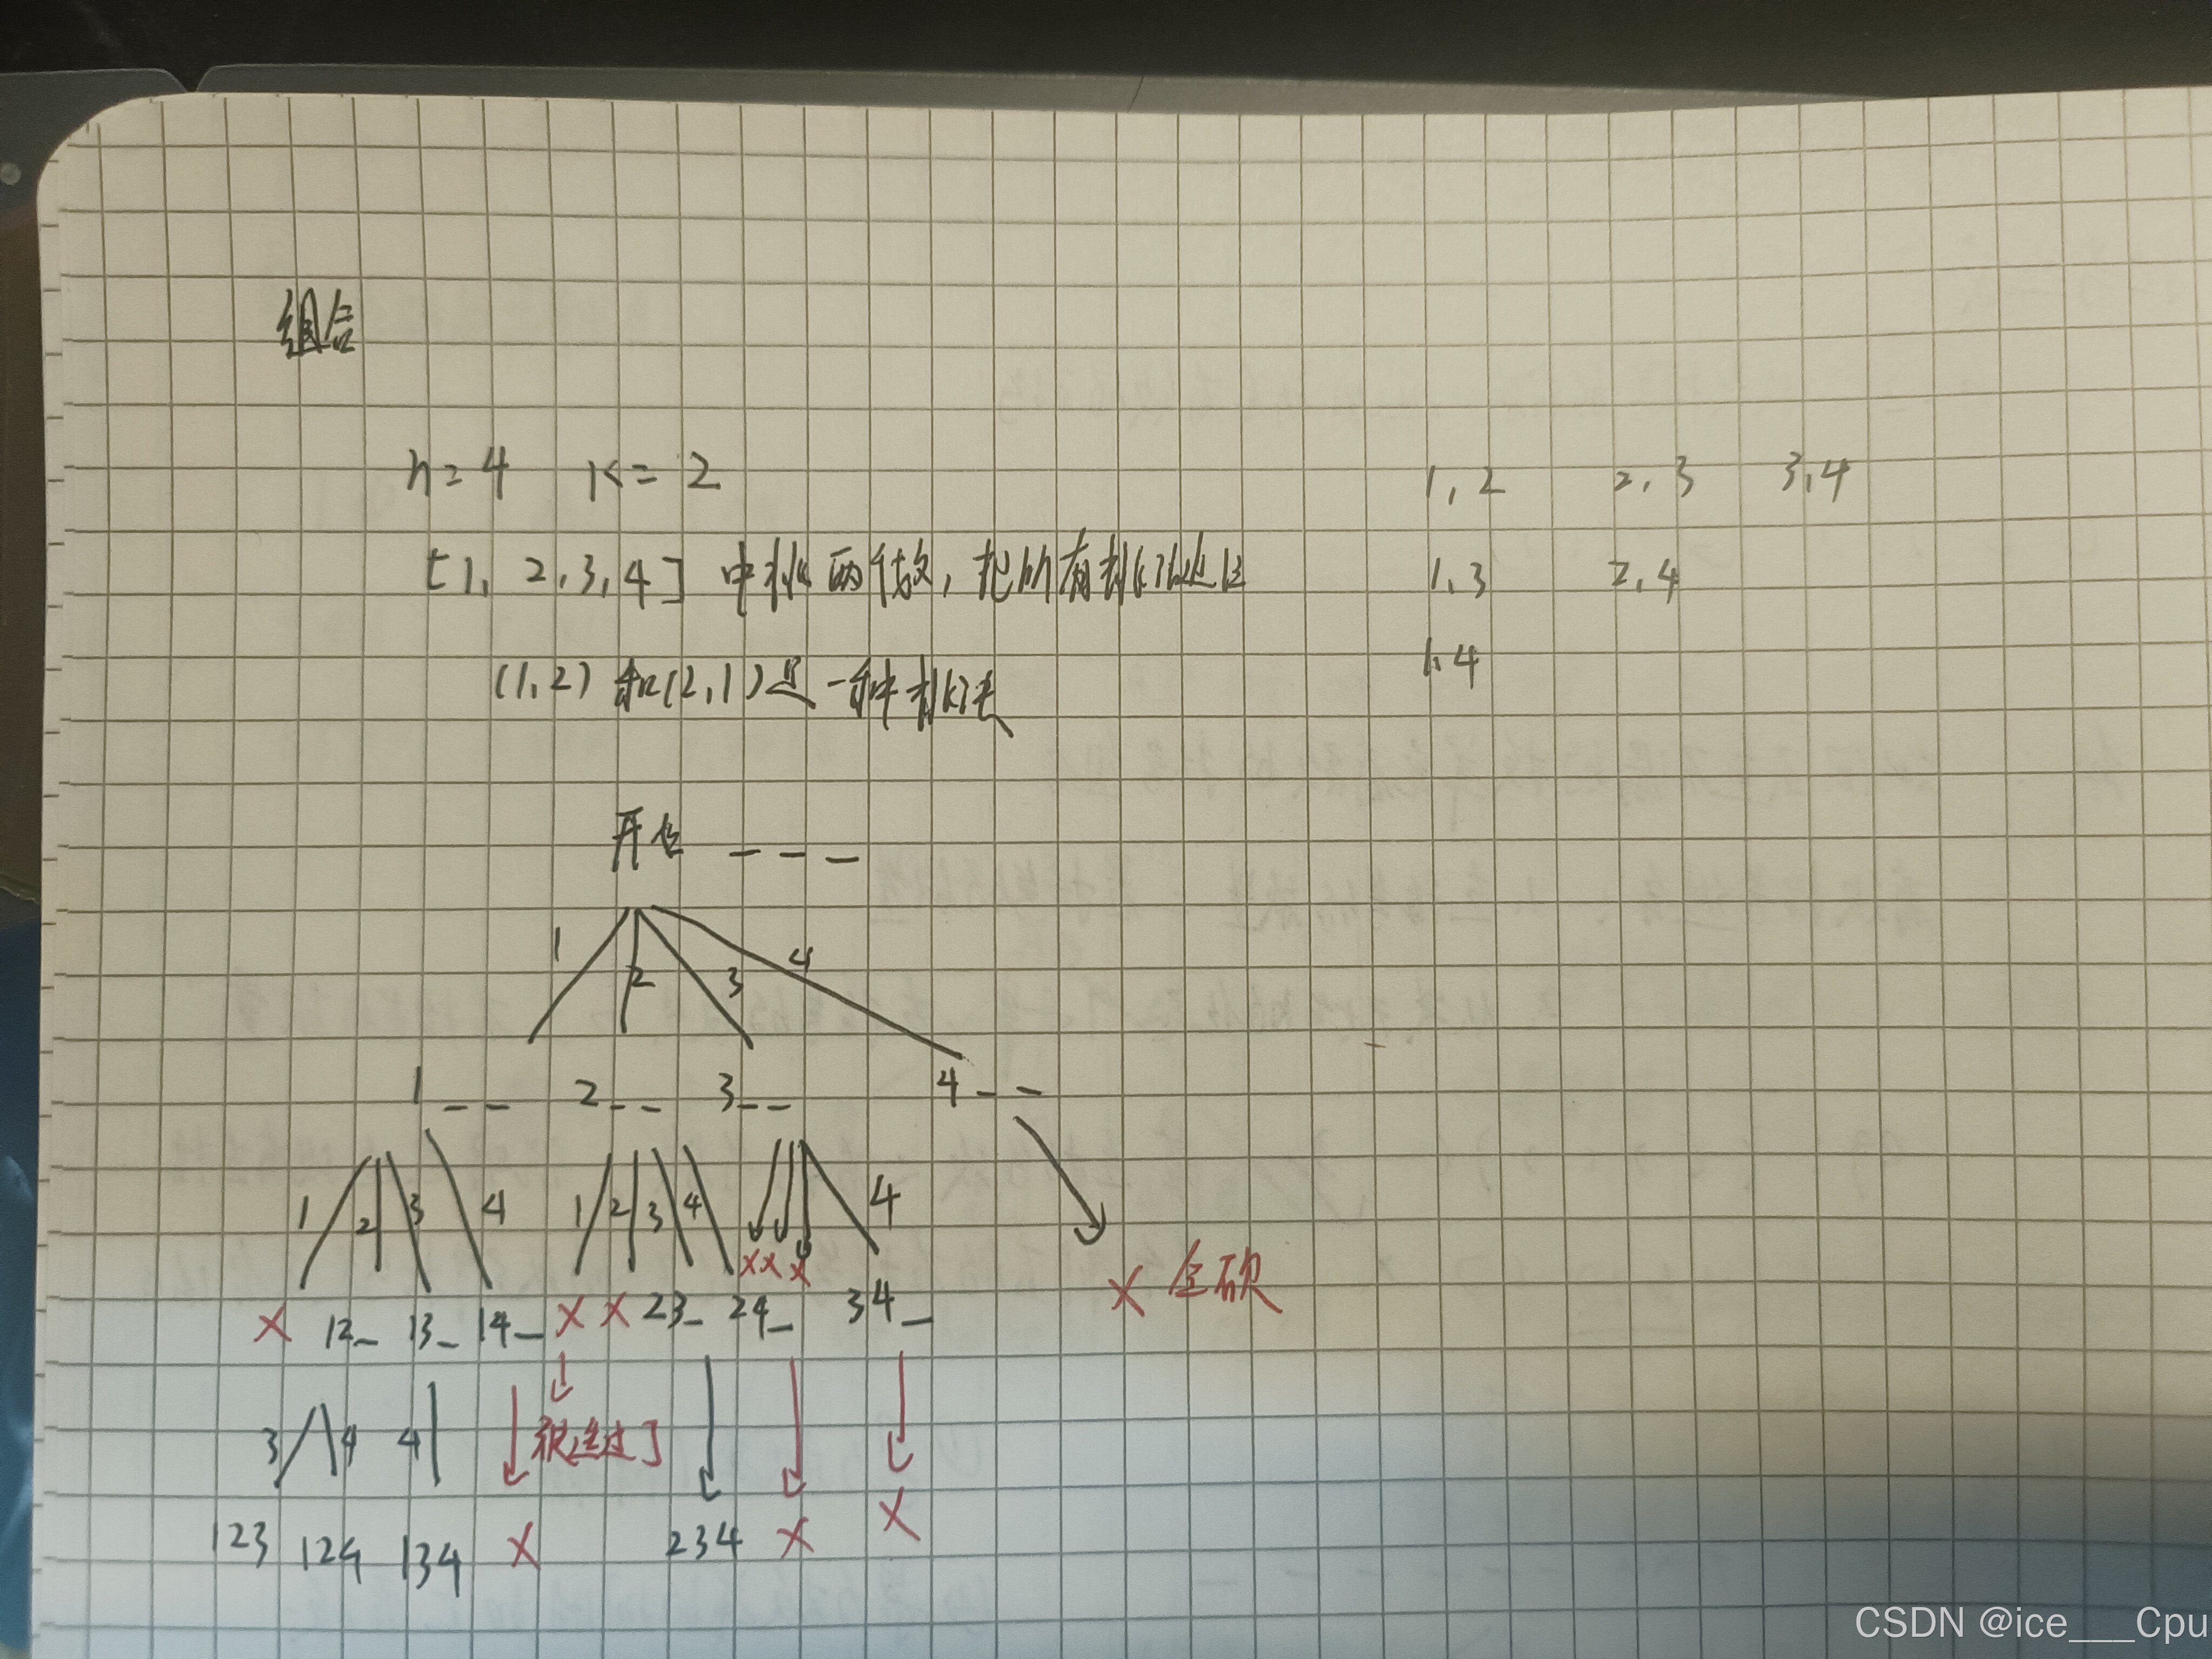 组合
n=4 k=2
[1, 2, 3, 4] 中挑两个数, 把所有挑法返回
(1, 2) 和 (2, 1) 是一种挑法
1, 2 2, 3 3, 4
1, 3 2, 4
1, 4
开始 _ _ _
1 2 3 4
1 _ _ 2 _ _ 3 _ _ 4 _ _
1 2 3 4 1 2 3 4 4
× × ×
× 12_ 13_ 14_ × × 23_ 24_ 34_ × 全砍
3 4 4 被选过了
123 124 134 × 234 × ×
CSDN @ice___Cpu